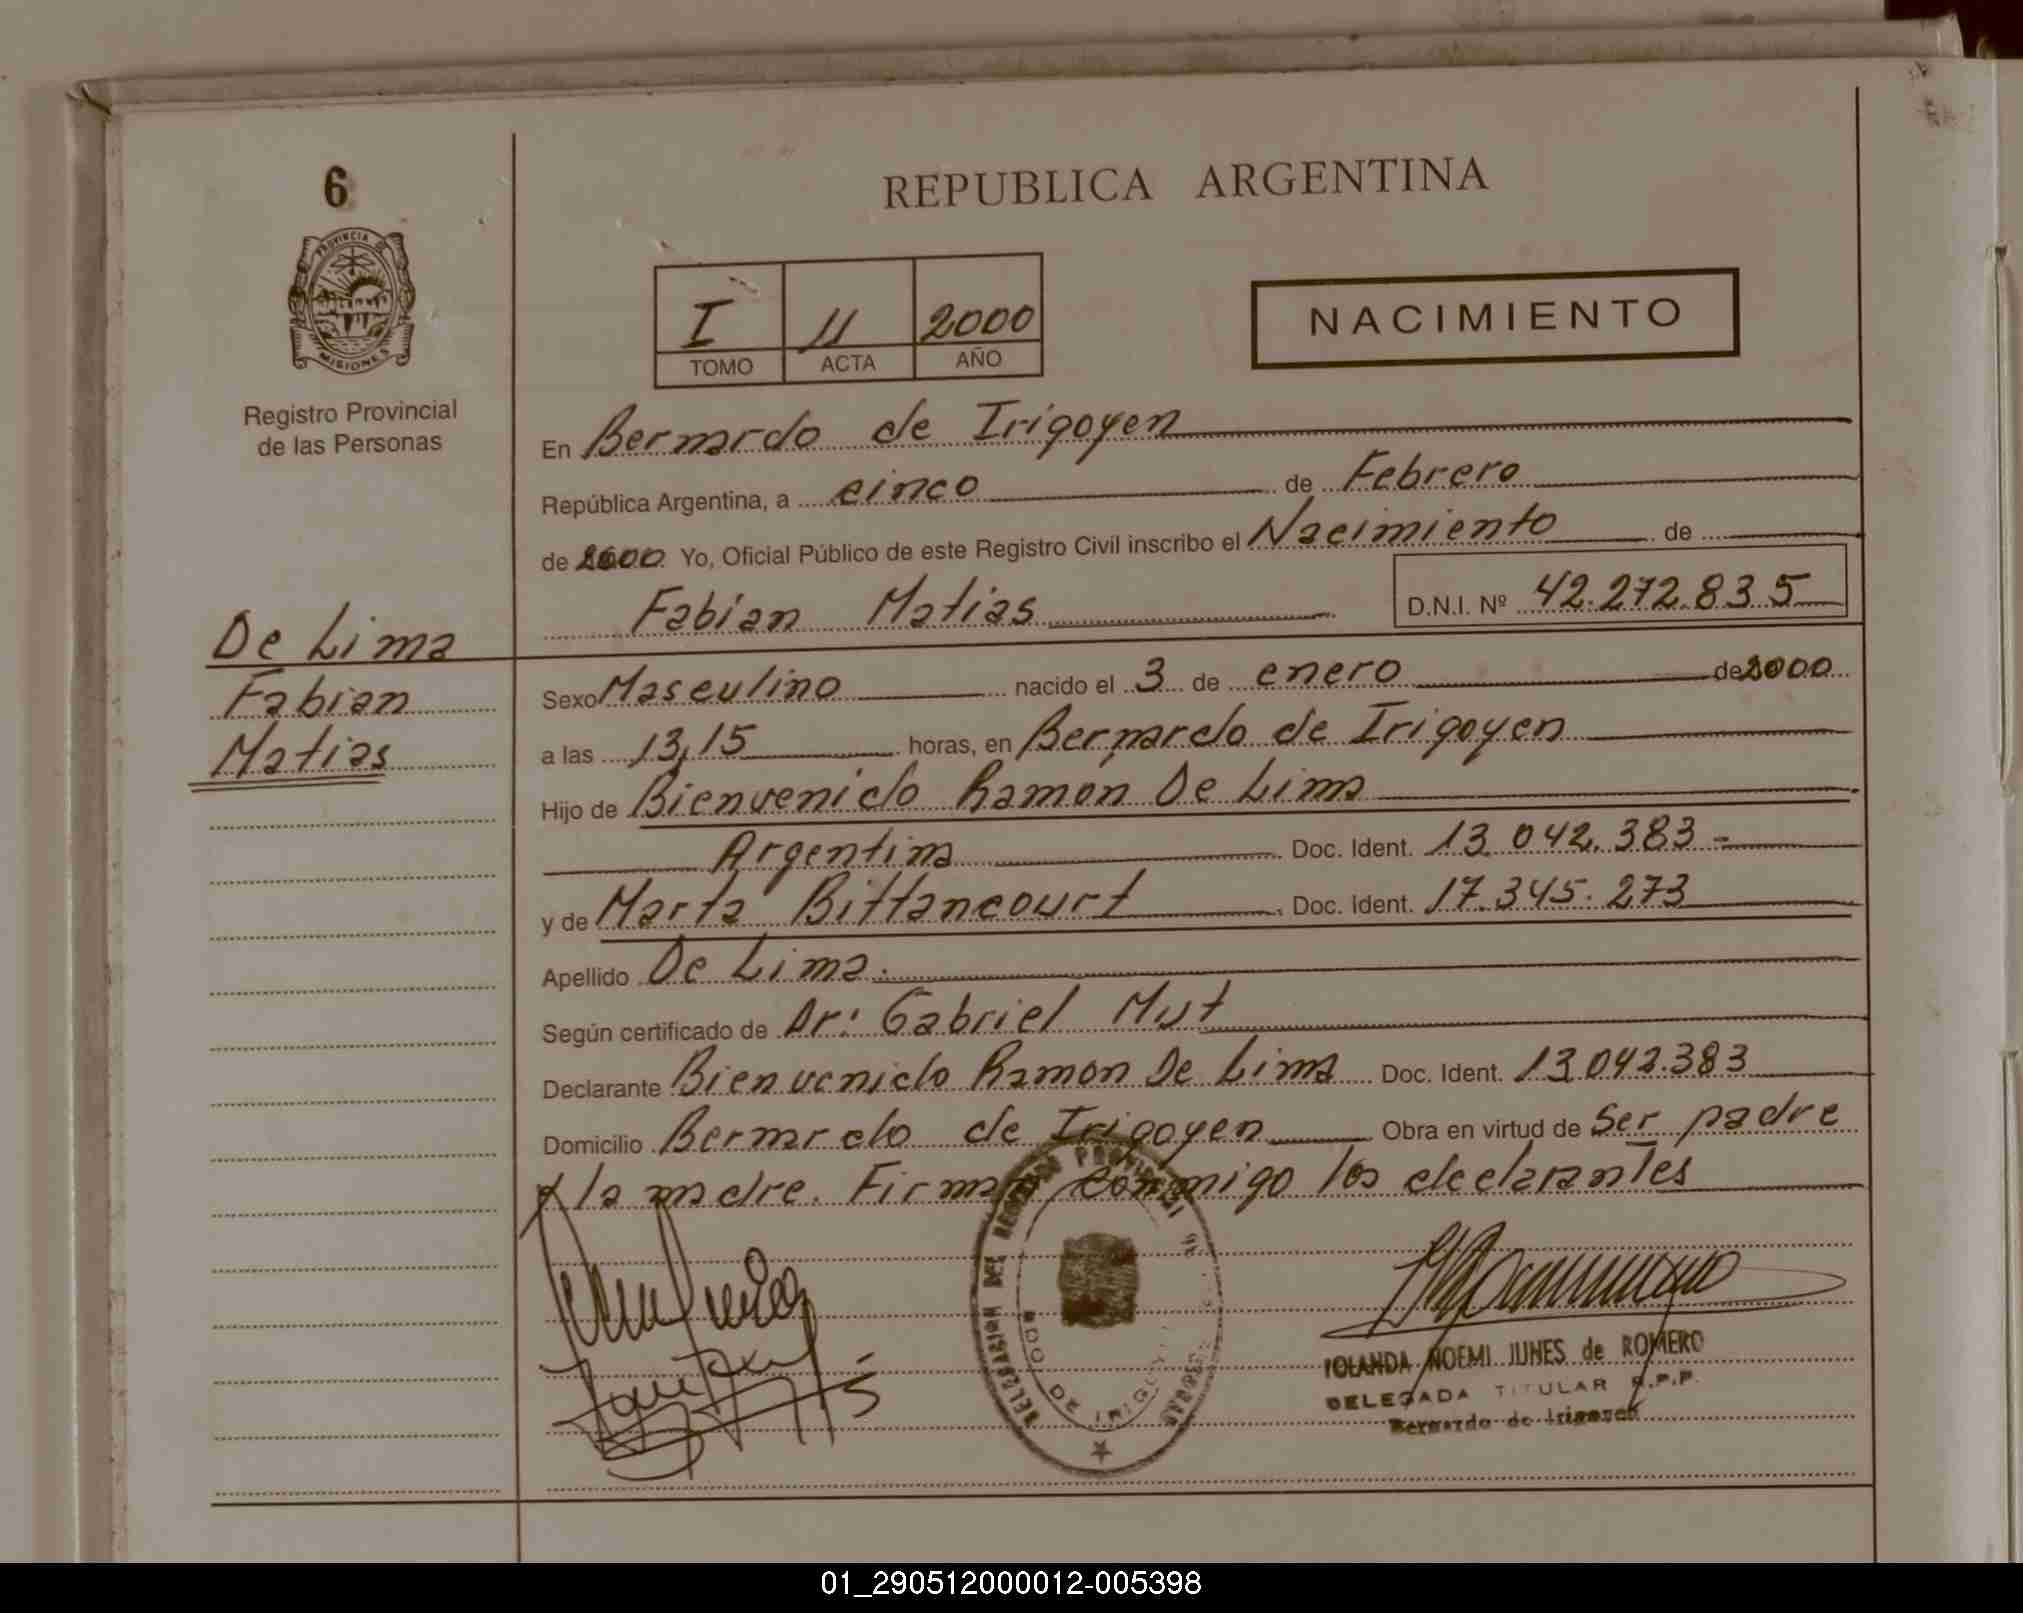 6
PROVINCIA DE
MISIONES
Registro Provincial
de las Personas
De Lima
Fabian
Matias
REPUBLICA ARGENTINA
I 11 2000
TOMO ACTA AÑO
NACIMIENTO
En Bernardo de Irigoyen
República Argentina, a cinco de Febrero
de 2000 Yo, Oficial Público de este Registro Civil inscribo el Nacimiento de
Fabian Matias D.N.I. Nº 42.272.835
Sexo Masculino nacido el 3 de enero de 2000
a las 13,15 horas, en Bernardo de Irigoyen
Hijo de Bienvenido Ramon De Lima
Argentina Doc. Ident. 13.042.383-
y de Marta Bittancourt Doc. Ident. 17.345.273
Apellido De Lima.
Según certificado de Dr: Gabriel Mut
Declarante Bienvenido Ramon De Lima Doc. Ident. 13.042.383
Domicilio Bernardo de Irigoyen Obra en virtud de Ser padre
y la madre. Firman conmigo los declarantes
DELEGACION DEL REGISTRO PROVINCIAL
DE IRIGOYEN
IOLANDA NOEMI JUNES de ROMERO
DELEGADA TITULAR R.P.P.
Bernardo de Irigoyen
01_290512000012-005398